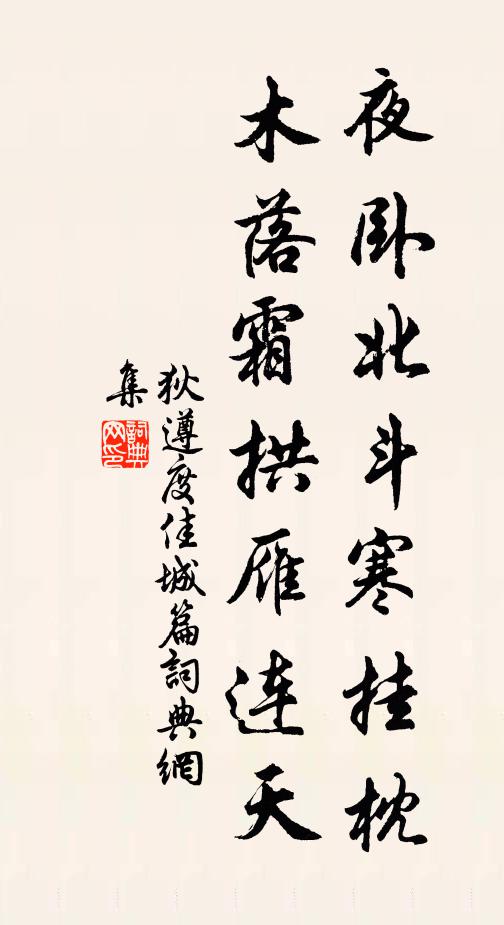 夜卧北斗寒挂枕
木落霜拱雁连天
狄遵度佳城篇詞典網
集
詞典网印